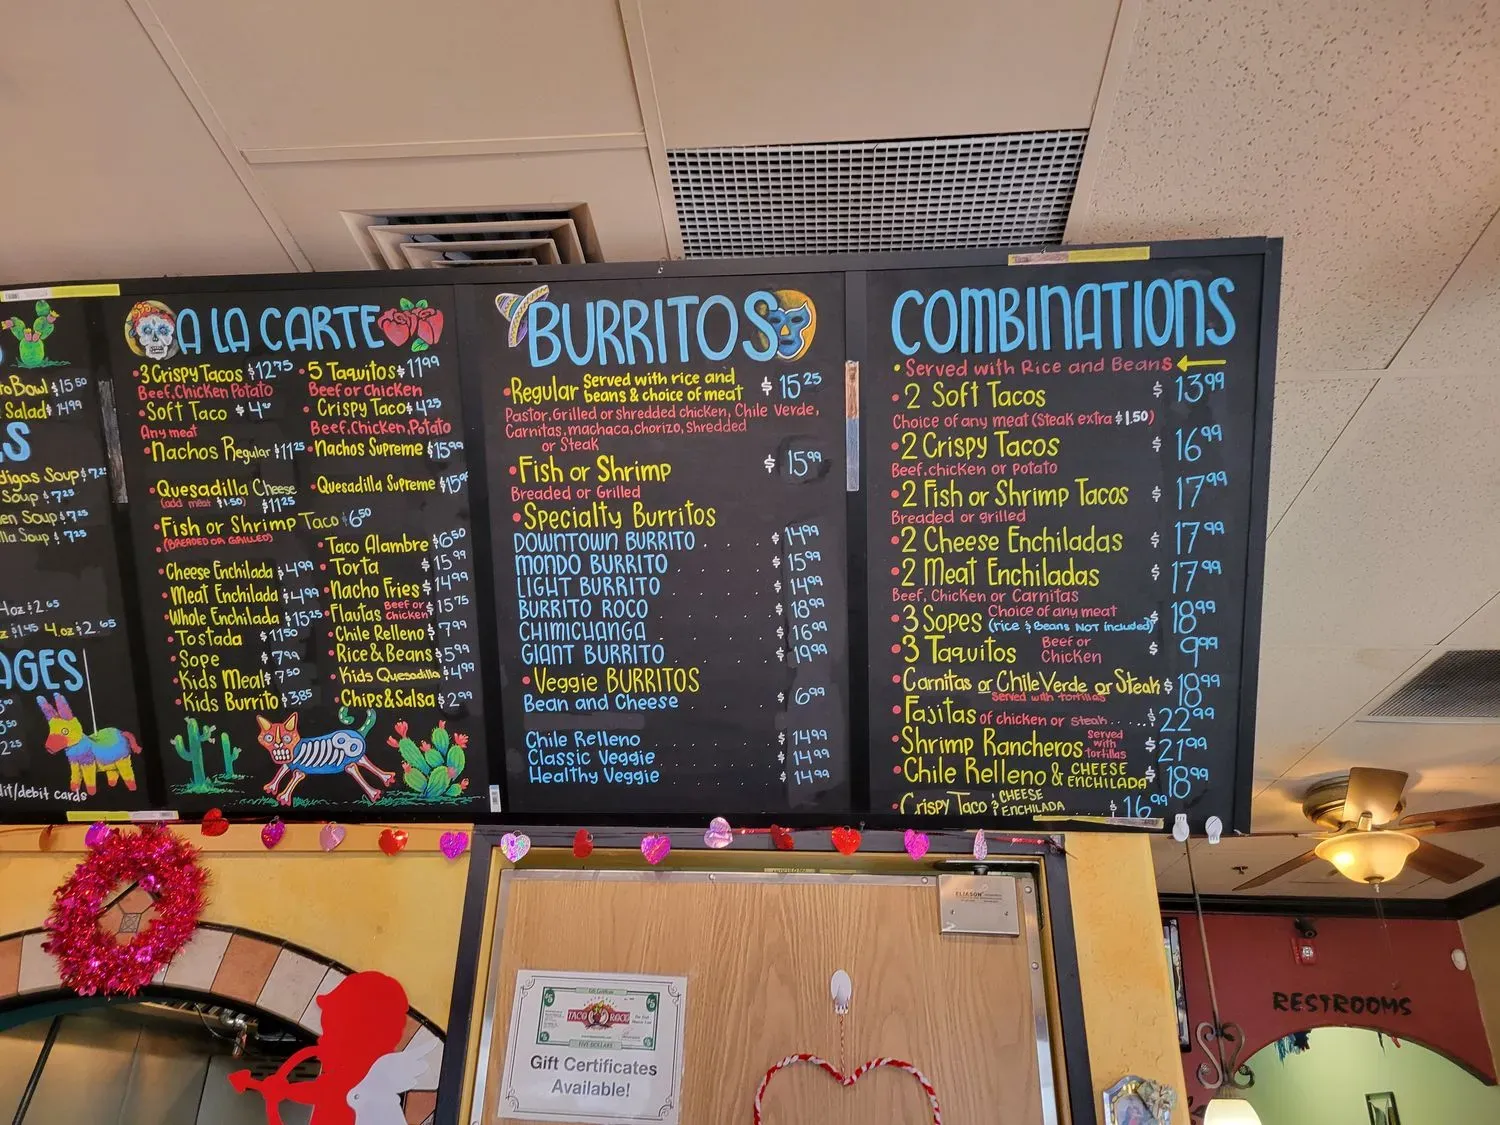 Bowl $15.50
Salad $14.99
Soup $7.25
Soup $7.25
Soup $7.25
Soup $7.25
4oz $2.65
$1.45 4oz $2.65
AGES
debit cards
A LA CARTE
• 3 Crispy Tacos $12.75
Beef, Chicken Potato
• Soft Taco
Any meat
• Nachos Regular $11.25
• Quesadilla Cheese
(add meat $1.50) $11.25
• Fish or Shrimp Taco $6.50
(BREADED OR GRILLED)
• Cheese Enchilada $4.99
• Meat Enchilada $4.99
• Whole Enchilada $15.25
• Tostada $11.50
• Sope $7.99
• Kids Meal $7.50
• Kids Burrito $3.85
• 5 Taquitos $11.99
Beef or Chicken
• Crispy Taco $4.25
Beef, Chicken, Potato
• Nachos Supreme $15.99
• Quesadilla Supreme
• Taco Alambre $6.50
• Torta $15.99
• Nacho Fries $14.99
• Flautas Beef or Chicken $15.75
• Chile Relleno $7.99
• Rice & Beans $5.99
• Kids Quesadilla $4.99
• Chips & Salsa $2.99
BURRITOS
• Regular Served with rice and $15.25
beans & choice of meat
Pastor, Grilled or shredded chicken, Chile Verde,
Carnitas, machaca, chorizo, Shredded
or Steak
• Fish or Shrimp $15.99
Breaded or Grilled
• Specialty Burritos
DOWNTOWN BURRITO . . . $14.99
MONDO BURRITO . . . $15.99
LIGHT BURRITO . . . $14.99
BURRITO ROCO . . . $18.99
CHIMICHANGA . . . $16.99
GIANT BURRITO . . . $19.99
• Veggie BURRITOS
Bean and Cheese . . . $6.99
Chile Relleno . . . $14.99
Classic Veggie . . . $14.99
Healthy Veggie . . . $14.99
COMBINATIONS
• Served with Rice and Beans ←
• 2 Soft Tacos $13.99
Choice of any meat (Steak extra $1.50)
• 2 Crispy Tacos $16.99
Beef, chicken or Potato
• 2 Fish or Shrimp Tacos $17.99
Breaded or grilled
• 2 Cheese Enchiladas $17.99
• 2 Meat Enchiladas $17.99
Beef, Chicken or Carnitas
• 3 Sopes Choice of any meat $18.99
(rice & Beans NOT included)
• 3 Taquitos Beef or Chicken $9.99
• Carnitas or Chile Verde or Steak $18.99
Served with tortillas
• Fajitas of chicken or steak...... $22.99
• Shrimp Rancheros Served with tortillas $21.99
• Chile Relleno & CHEESE ENCHILADA $18.99
• Crispy Taco & CHEESE ENCHILADA $16.99
ELIASON
RESTROOMS
Gift Certificate
$5 $5
TACO ROCO
FIVE DOLLARS
Gift Certificates
Available!